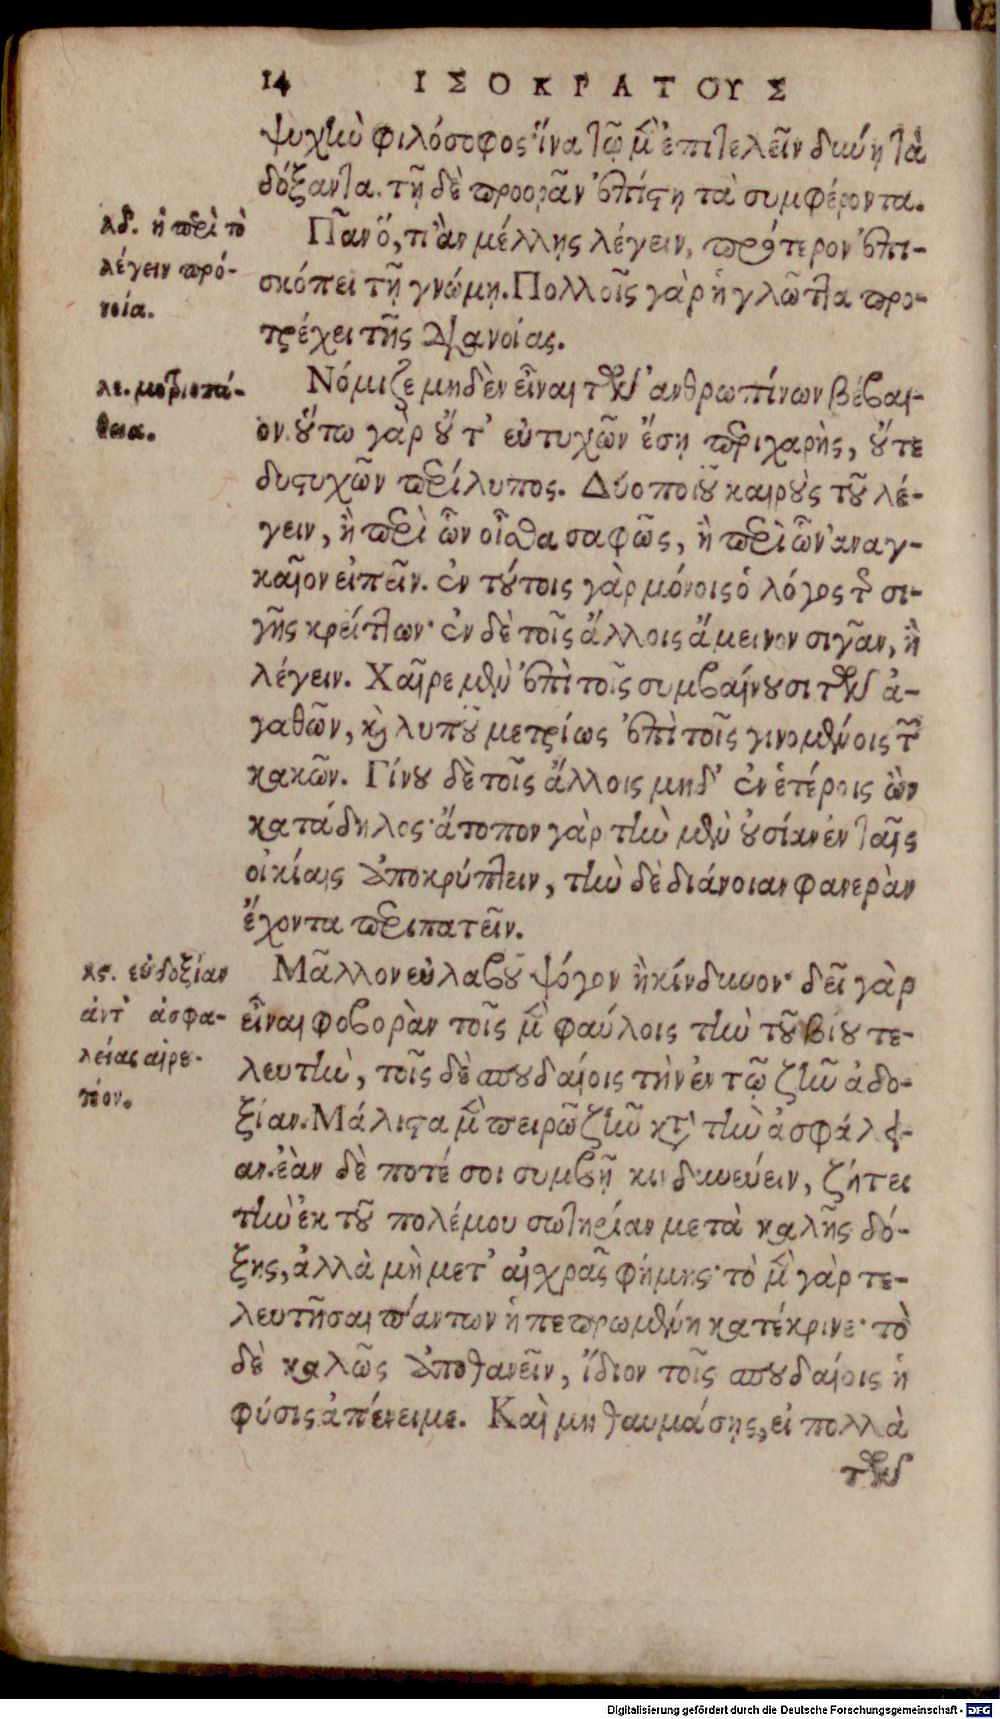 14 ΙΣΟΚΡΑΤΟΥΣ
ψυχὴν φιλόσοφος· ἵνα τῷ μὲν ἐπιτελεῖν δύνῃ τὰ
δόξαντα. τῇ δὲ προορᾶν ἐπίστῃ τὰ συμφέροντα.
λδ. ἡ περὶ τὸ
λέγειν πρό-
νοια.
Πᾶν ὅ, τι ἂν μέλλῃς λέγειν, πρότερον ἐπι-
σκόπει τῇ γνώμῃ. Πολλοῖς γὰρ ἡ γλῶττα προ-
τρέχει τῆς διανοίας.
λε. μετριοπά-
θεια.
Νόμιζε μηδὲν εἶναι τῶν ἀνθρωπίνων βέβαι-
ον. οὕτω γὰρ οὔτ' εὐτυχῶν ἔσῃ περιχαρὴς, οὔτε
δυστυχῶν περίλυπος. Δύο ποιοῦ καιροὺς τοῦ λέ-
γειν, ἢ περὶ ὧν οἶσθα σαφῶς, ἢ περὶ ὧν ἀναγ-
καῖον εἰπεῖν. ἐν τούτοις γὰρ μόνοις ὁ λόγος τῆς σι-
γῆς κρείττων· ἐν δὲ τοῖς ἄλλοις ἄμεινον σιγᾶν, ἢ
λέγειν. Χαῖρε μὲν ἐπὶ τοῖς συμβαίνουσι τῶν ἀ-
γαθῶν, καὶ λυποῦ μετρίως ἐπὶ τοῖς γινομένοις τῶν
κακῶν. Γίνου δὲ τοῖς ἄλλοις μηδ' ἐν ἑτέροις ὢν
κατάδηλος· ἄτοπον γὰρ τὴν μὲν οὐσίαν ἐν ταῖς
οἰκίαις ἀποκρύπτειν, τὴν δὲ διάνοιαν φανερὰν
ἔχοντα περιπατεῖν.
λς. εὐδοξίαν
ἀντ' ἀσφα-
λείας αἱρε-
τέον.
Μᾶλλον εὐλαβοῦ ψόγον ἢ κίνδυνον· δεῖ γὰρ
εἶναι φοβορὰν τοῖς μὲν φαύλοις τὴν τοῦ βίου τε-
λευτὴν, τοῖς δὲ σπουδαίοις τὴν ἐν τῷ ζῆν ἀδο-
ξίαν. Μάλιστα μὲν πειρῶ ζῆν κατὰ τὴν ἀσφάλει-
αν. ἐὰν δὲ ποτέ σοι συμβῇ κινδυνεύειν, ζήτει
τὴν ἐκ τοῦ πολέμου σωτηρίαν μετὰ καλῆς δό-
ξης, ἀλλὰ μὴ μετ' αἰχρᾶς φήμης· τὸ μὲν γὰρ τε-
λευτῆσαι πάντων ἡ πεπρωμένη κατέκρινε· τὸ
δὲ καλῶς ἀποθανεῖν, ἴδιον τοῖς σπουδαίοις ἡ
φύσις ἀπένειμε. Καὶ μὴ θαυμάσῃς, εἰ πολλὰ
τῶν
Digitalisierung gefördert durch die Deutsche Forschungsgemeinschaft - DFG